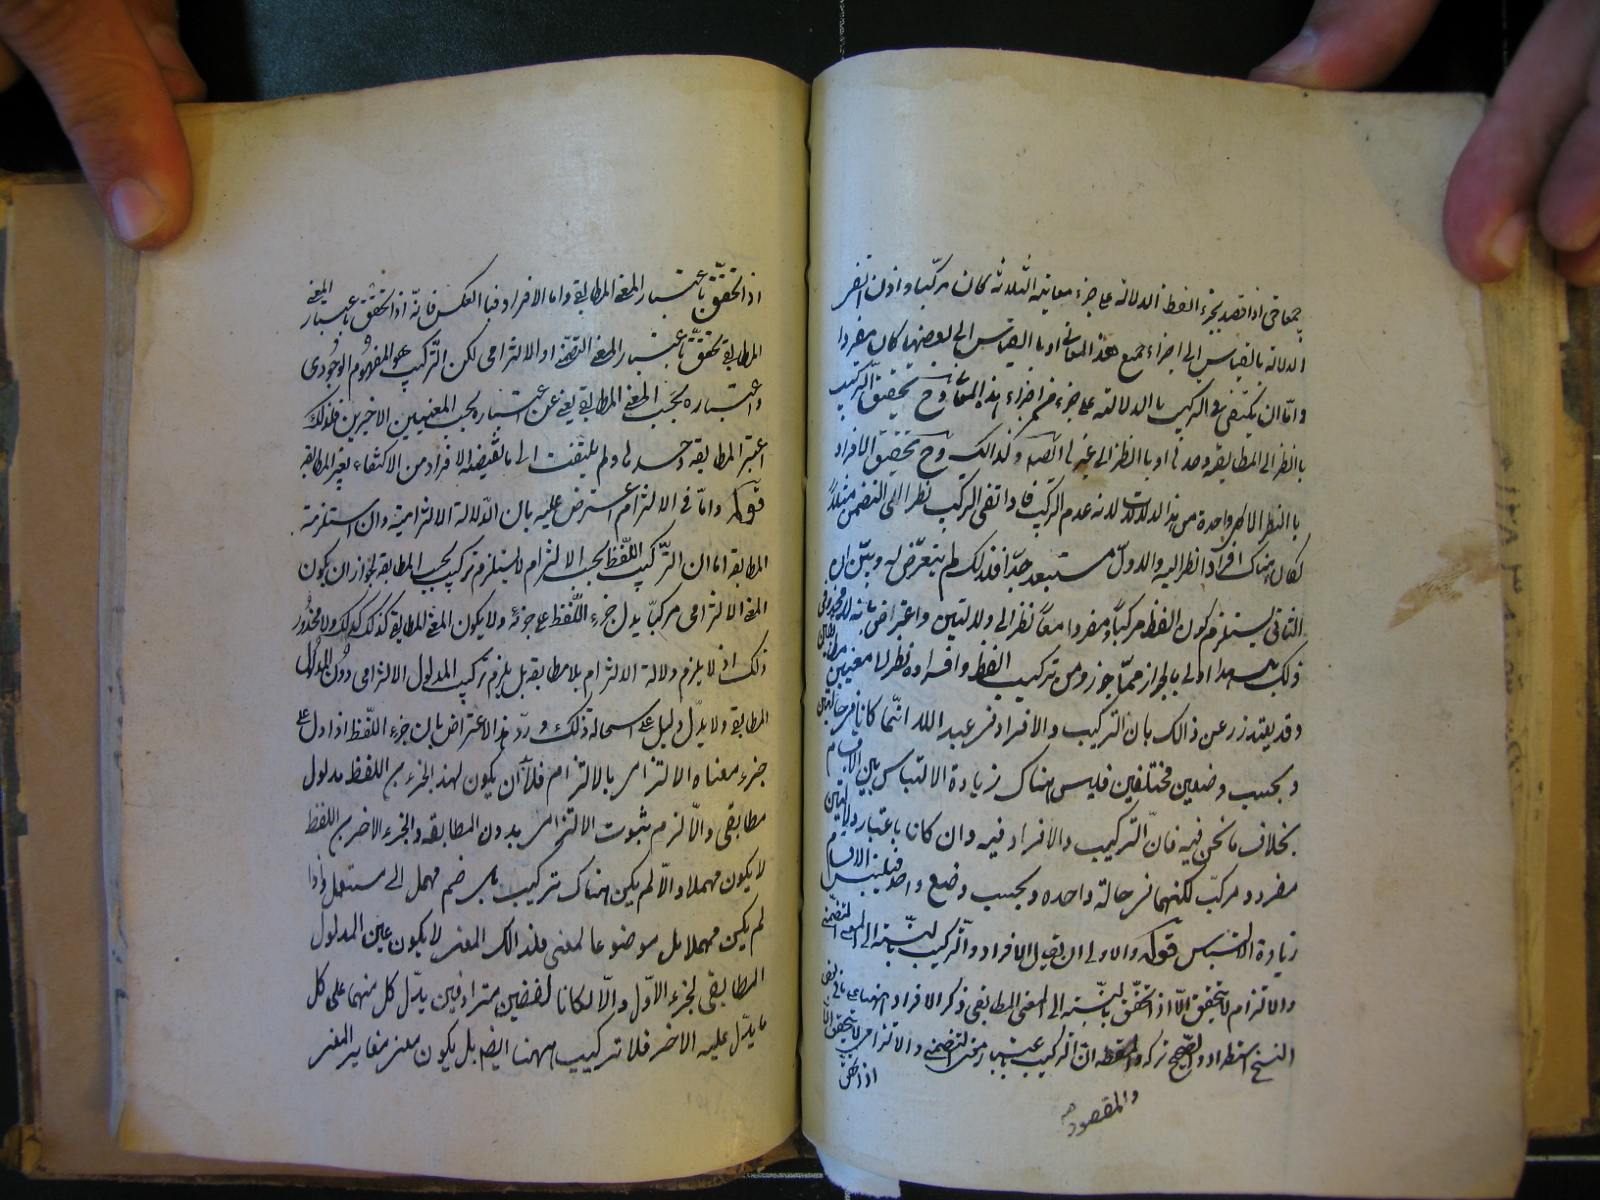 جميعا حتى اذا قصد بجزء اللفظ الدلالة على جزء معانيه الثلاثة كان مركبا واذن انتفى
الدلالة بالقياس الى اجزاء جميع هذه المعانى او بالقياس الى بعضها كان مفردا
واما ان يكتفى فى التركيب بالدلالة على جزء من اجزاء هذه المعانى وح تحقيق التركيب
بالنظر الى المطابقة وحدها او بالنظر الى غيرها ايضا وكذلك وح تحقيق الافراد
بالنظر الى كل واحدة من هذه الدلالات لانه عدم التركيب فاذا انتفى التركيب نظرا الى التضمن مثلا
لكان هناك افراد نظرا اليه والاول مستبعد جدا فلذلك لم يتعرض له وبين ان
الثانى يستلزم كون اللفظ مركبا ومفردا معا نظرا الى دلالتين واعترض بانه لا محذور فى
ذلك بل هذا اولى بالجواز مما جوزوه من تركيب اللفظ وافراده نظرا الى معنيين مطابقيين
وقد يعتذر عن ذالك بان التركيب والافراد فى عبد الله انما كانا فى حالتين
وبحسب وضعين مختلفين فليس هناك زيادة الالتباس بين الاقسام
بخلاف ما نحن فيه فان التركيب والافراد فيه وان كانا باعتبار دلالتين
مفرد ومركب لكنهما فى حالة واحده وبحسب وضع واحد فيلتبس الاقسام
زيادة الالتباس قوله والاولى ان يقال الافراد والتركيب بالنسبة الى المعنى التضمنى
والالتزام لا يتحقق الا اذا تحقق بالنسبة الى المعنى المطابقى ذكر الافراد ههنا على ما فى بعض
النسخ استطراد والصحيح تركه والمقصود ان التركيب باعتبار المعنى التضمنى والالتزامى لا يتحقق الا
اذا تحقق
والمقصود
اذا تحقق باعتبار المعنى المطابقى واما الافراد فبالعكس فانه اذا تحقق باعتبار المعنى
المطابقى تحقق باعتبار المعنى التضمنى او الالتزامى لكن التركيب هو المفهوم الوجودى
واعتباره بحسب المعنى المطابقى يغنى عن اعتباره بحسب المعنيين الاخيرين فلذلك
اعتبر المطابقة وحدها ولم يلتفت الى ما يقتضيه الافراد من الاكتفاء بغير المطابقة
قوله واما فى الالتزام اعترض عليه بان الدلالة الالتزامية وان استلزمت
المطابقة اما ان التركيب اللفظ بحسب الالتزام لا يستلزم تركيبه بحسب المطابقة لجواز ان يكون
المعنى الالتزامى مركبا يدل جزء اللفظ على جزئه ولا يكون المعنى المطابقى كذلك ولا محذور
ذلك اذ لا يلزم دلالة الالتزام بلا مطابقة بل يلزم تركيب المدلول الالتزامى دون المدلول
المطابقى ولا يدل دليل على استحالة ذلك ورد هذا الاعتراض بان جزء اللفظ اذا دل على
جزء معناه الالتزامى بالالتزام فلا بد ان يكون لهذا الجزء من اللفظ مدلول
مطابقى والا لزم ثبوت الالتزامى بدون المطابقة والجزء الاخر من اللفظ
لا يكون مهملا والا لم يكن هناك تركيب بل ضم مهمل الى مستعمل واذا
لم يكن مهملا بل موضوعا لمعنى فلذالك المعنى لا يكون عين المدلول
المطابقى لجزء الاول والا لكانا لفظين مترادفين يدل كل منهما على كل
ما يدل عليه الاخر فلا تركيب ههنا ايضا بل يكون معنى مغاير المعنى